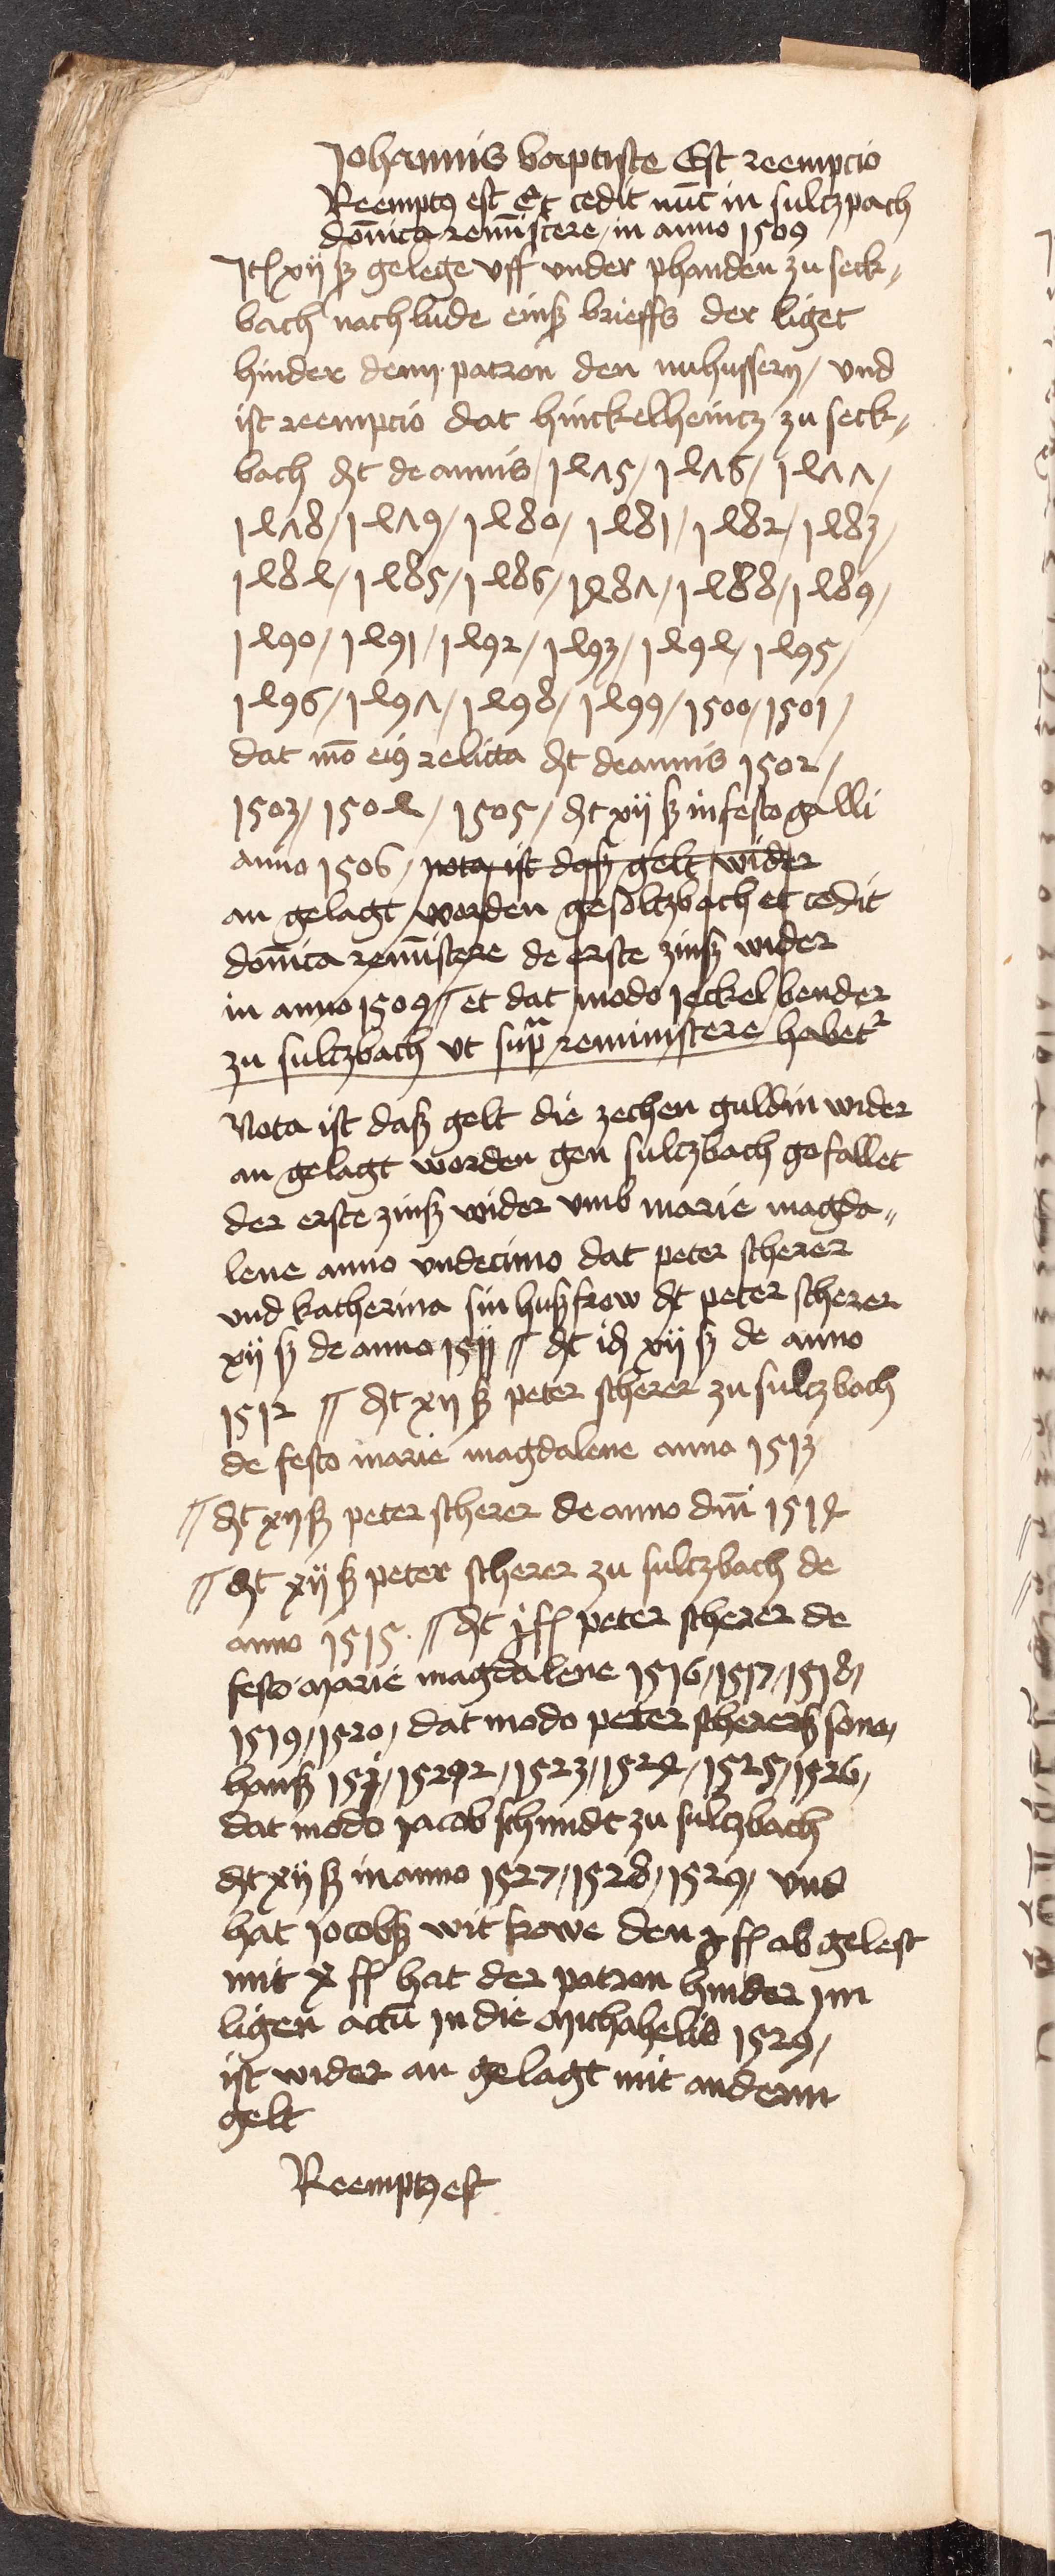 Johannis baptiste Est reempcio
Reempt9 est Et cedit nūc in sultzpach
domīca remīscere / in anno 1509
Jtem xij ß gelege vff vnder phanden zu seck„
bach nach lude einß brieffs der liget
hinder dem patron den nuhussern / vnd
ist reempcio dat hinckelheintz zu seck„
bach dt de annis / 1475 / 1476 / 1477 /
1478 / 1479 / 1480 / 1481 / 1482 / 1483 /
1484 / 1485 / 1486 / 1487 / 1488 / 1489 /
1490 / 1491 / 1492 / 1493 / 1494 / 1495 /
1496 / 1497 / 1498 / 1499 / 1500 / 1501 /
dat mō ei9 relicta dt de annis 1502 /
1503 / 1504 / 1505 / dt xij ß in festo galli
anno 1506 / nota ist daß gelt wider
an gelagt worden gesoltzbach et cedit
domīca remīscere de erste zinß wider
in anno 1509 // et dat modo jeckel bender
zu sultzbach vt supra reminiscere habet2
Nota ist daß gelt die zechen guldin wider
an gelagt worden gen sultzbach gefallet
der erste zinß wider vmb marie magda„
lene anno vndecimo dat peter scherer
vnd katherina sin hußfrow dt peter scherer
xij ß de anno 1511 // dt id xij ß de anno
1512 // dt xij ß peter scherer zu sultzbach
de festo marie magdalene anno 1513
// dt xij ß peter scherer de anno dnī 1514
// dt xij ß peter scherer zu sultzbach de
anno 1515 . // dt j fl peter scherer de
festo Marie magdalene 1516 / 1517 / 1518 /
1519 / 1520 / dat modo peter schererß sone /
hanß 152j / 1522 / 1523 / 1524 / 1525 / 1526 /
dat modo jacob schmidt zu sultzbach
dt xij ß in anno 1527 / 1528 / 1529 / vnd
hat jocobß wit frowe den j fl ab gelest
mit x fl hat der patron hinder jm
ligen actū jn die Michahelis 1529 /
ist wider an gelagt mit anderm
gelt
Reempt9 est